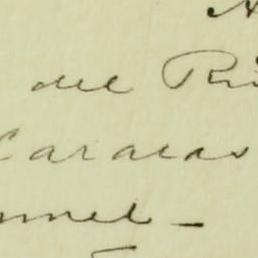 del Ri
Caracas
nnel —